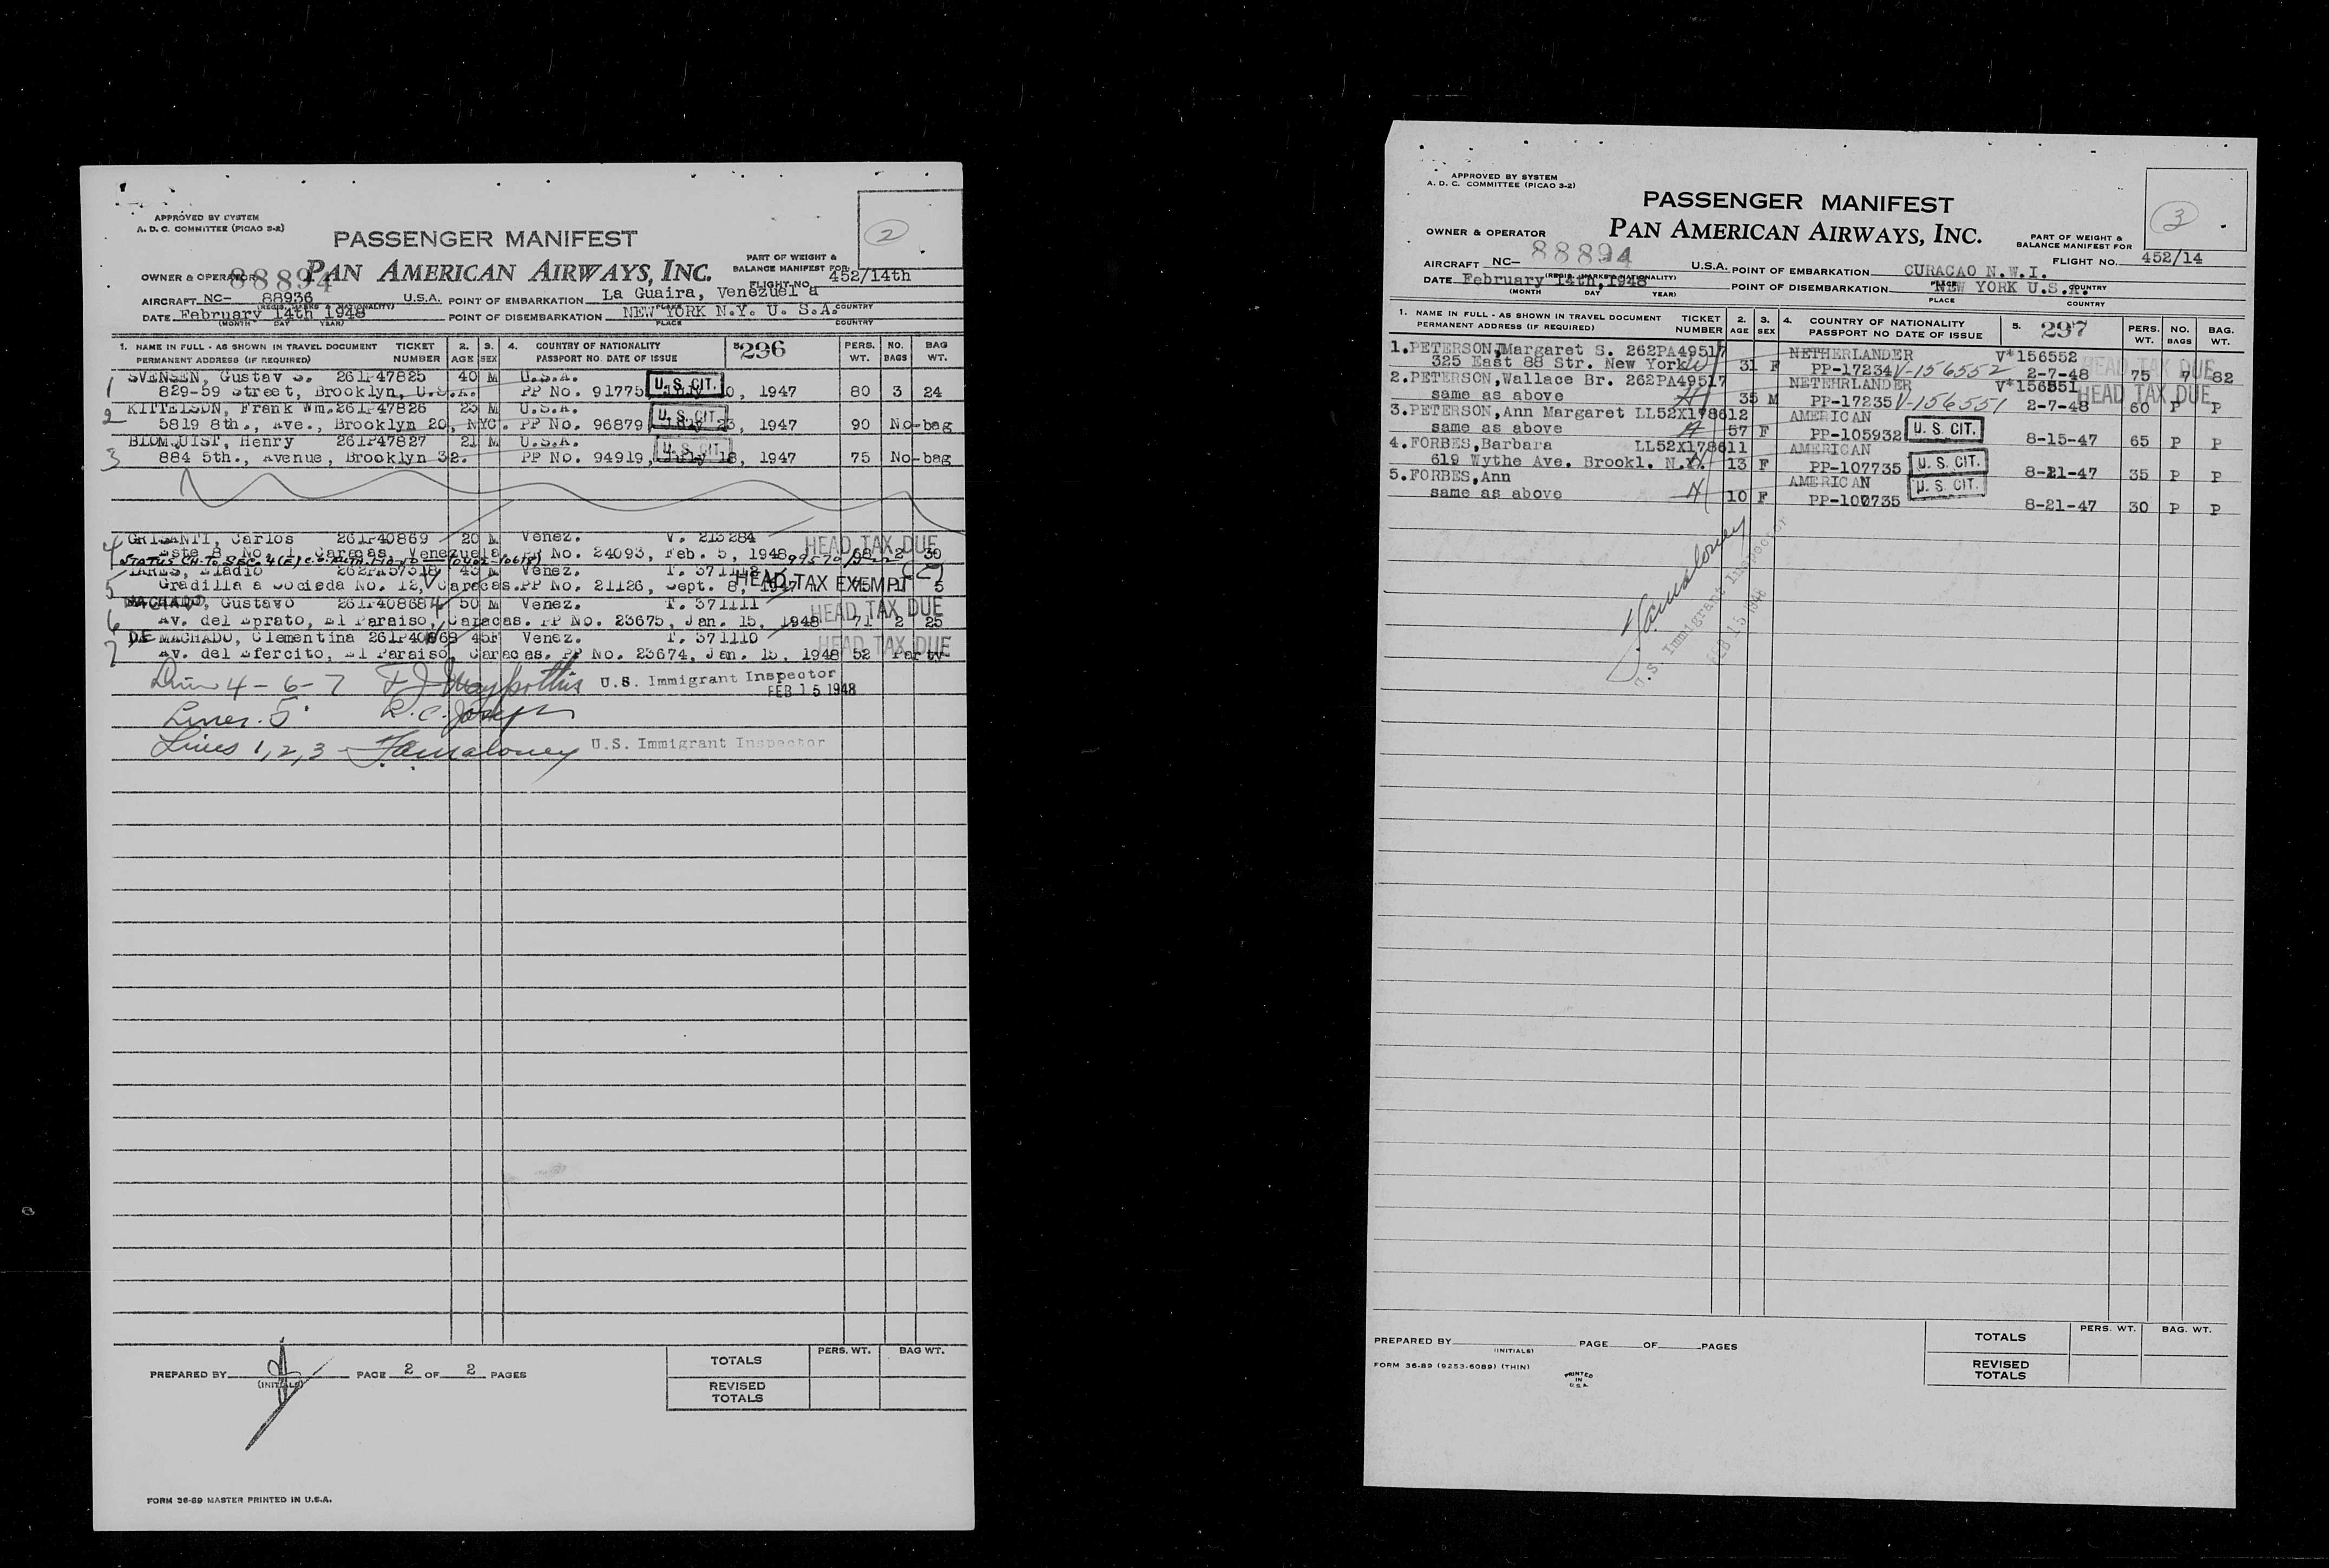 APPROVED BY SYSTEM
A. D. C. COMMITTEE (PICAO 3-2)
2
PASSENGER MANIFEST
PAN AMERICAN AIRWAYS, INC.
OWNER & OPERATOR
88894
PART OF WEIGHT &
BALANCE MANIFEST FOR
FLIGHT NO. 452/14th
AIRCRAFT NC- 88936 U.S.A. POINT OF EMBARKATION La Guaira, Venezuela
(REGIS. MARKS & NATIONALITY) PLACE COUNTRY
DATE February 14th 1948 POINT OF DISEMBARKATION NEW YORK N.Y. U. S.A.
(MONTH DAY YEAR) PLACE COUNTRY
1. NAME IN FULL - AS SHOWN IN TRAVEL DOCUMENT TICKET 2. 3. 4. COUNTRY OF NATIONALITY 5. 296 PERS. NO. BAG
PERMANENT ADDRESS (IF REQUIRED) NUMBER AGE SEX PASSPORT NO. DATE OF ISSUE WT. BAGS WT.
1 SVENSEN, Gustav S. 261P47825 40 M U.S.A. U. S. CIT.
829-59 Street, Brooklyn, U.S.A. PP No. 91775 0, 1947 80 3 24
2 KITTELSON, Frank Wm. 261P47826 25 M U.S.A. U. S. CIT.
5819 8th., Ave., Brooklyn 20, NYC. PP No. 96879 23, 1947 90 No-bag
3 BLOMQUIST, Henry 261P47827 21 M U.S.A. U. S. CIT.
884 5th., Avenue, Brooklyn 32. PP No. 94919, July 18, 1947 75 No-bag
4 GRISANTI, Carlos 261P40869 20 M Venez. V. 213284 HEAD TAX DUE
Este 8, No. 1, Caracas, Venezuela. PP No. 24093, Feb. 5, 1948 68 2 30
STATUS CH. TO SEC. 4(E)
5 Eladio 262PA57318 43 M Venez. HEAD TAX EXEMPT
Gradilla a Socieda No. 12, Caracas. PP No. 21126, Sept. 8, 1947 75 1 5
6 MACHADO, Gustavo 261P40868 50 M Venez. T. 371111 HEAD TAX DUE
Av. del Eprato, El Paraiso, Caracas. PP No. 23675, Jan. 15, 1948 71 2 25
7 DE MACHADO, Clementina 261P40868 45F Venez. T. 371110 HEAD TAX DUE
Av. del Efercito, El Paraiso, Caracas. PP No. 23674, Jan. 15, 1948 52 Party
4-6-7 U.S. Immigrant Inspector
FEB 15 1948
Lines. 5 R.C. Joseph
Lines 1,2,3 - U.S. Immigrant Inspector
PREPARED BY (INITIALS) PAGE 2 OF 2 PAGES
PERS. WT. BAG WT.
TOTALS
REVISED
TOTALS
FORM 36-89 MASTER PRINTED IN U.S.A.
APPROVED BY SYSTEM
A. D. C. COMMITTEE (PICAO 3-2)
3
PASSENGER MANIFEST
PAN AMERICAN AIRWAYS, INC.
OWNER & OPERATOR
PART OF WEIGHT &
BALANCE MANIFEST FOR
FLIGHT NO. 452/14
AIRCRAFT NC- 88894 U.S.A. POINT OF EMBARKATION CURACAO N.W.I.
(REGIS. MARKS & NATIONALITY) PLACE COUNTRY
DATE February 14th, 1948 POINT OF DISEMBARKATION NEW YORK U.S.A.
(MONTH DAY YEAR) PLACE COUNTRY
1. NAME IN FULL - AS SHOWN IN TRAVEL DOCUMENT TICKET 2. 3. 4. COUNTRY OF NATIONALITY 5. 297 PERS. NO. BAG.
PERMANENT ADDRESS (IF REQUIRED) NUMBER AGE SEX PASSPORT NO DATE OF ISSUE WT. BAGS WT.
1. PETERSON, Margaret S. 262PA49517 NETHERLANDER V*156552 HEAD TAX DUE
325 East 88 Str. New York 31 F PP-17234 V-156552 2-7-48 75 7 82
2. PETERSON, Wallace Br. 262PA49517 NETEHRLANDER V*156551 HEAD TAX DUE
same as above 35 M PP-17235 V-156551 2-7-48 60 P P
3. PETERSON, Ann Margaret LL52X178612 AMERICAN
same as above 57 F PP-105932 U. S. CIT. 8-15-47 65 P P
4. FORBES, Barbara LL52X178611 AMERICAN
619 Wythe Ave. Brookl. N.Y. 13 F PP-107735 U. S. CIT. 8-21-47 35 P P
5. FORBES, Ann AMERICAN
same as above 10 F PP-107735 U. S. CIT. 8-21-47 30 P P
U.S. Immigrant Inspector
FEB 15 1948
PREPARED BY (INITIALS) PAGE OF PAGES
FORM 36-89 (9253-6089) (THIN)
PRINTED
IN
U.S.A.
PERS. WT. BAG. WT.
TOTALS
REVISED
TOTALS